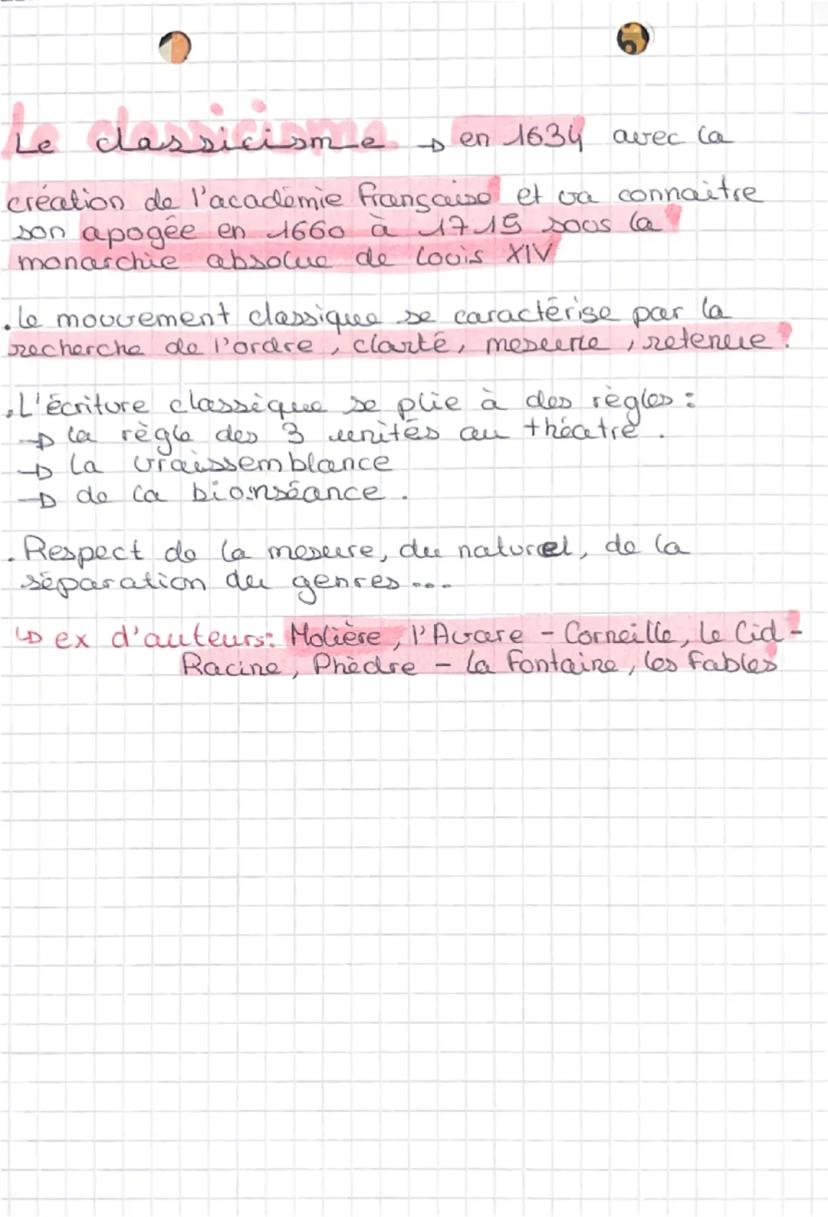 Le classicisme → en 1634 avec la
création de l'académie française et va connaitre
son apogée en 1660 à 1715 sous la
monarchie absolue de Louis XIV
. le mouvement classique se caractérise par la
recherche de l'ordre, clarté, mesure, retenue.
. L'écriture classique se plie à des règles :
→ la règle des 3 unités au théatre.
→ la vraissemblance
→ de la bionséance.
. Respect de la mesure, du naturel, de la
séparation du genres...
↳ ex d'auteurs: Molière, l'Avare - Corneille, le Cid -
Racine, Phèdre - la Fontaine, les Fables